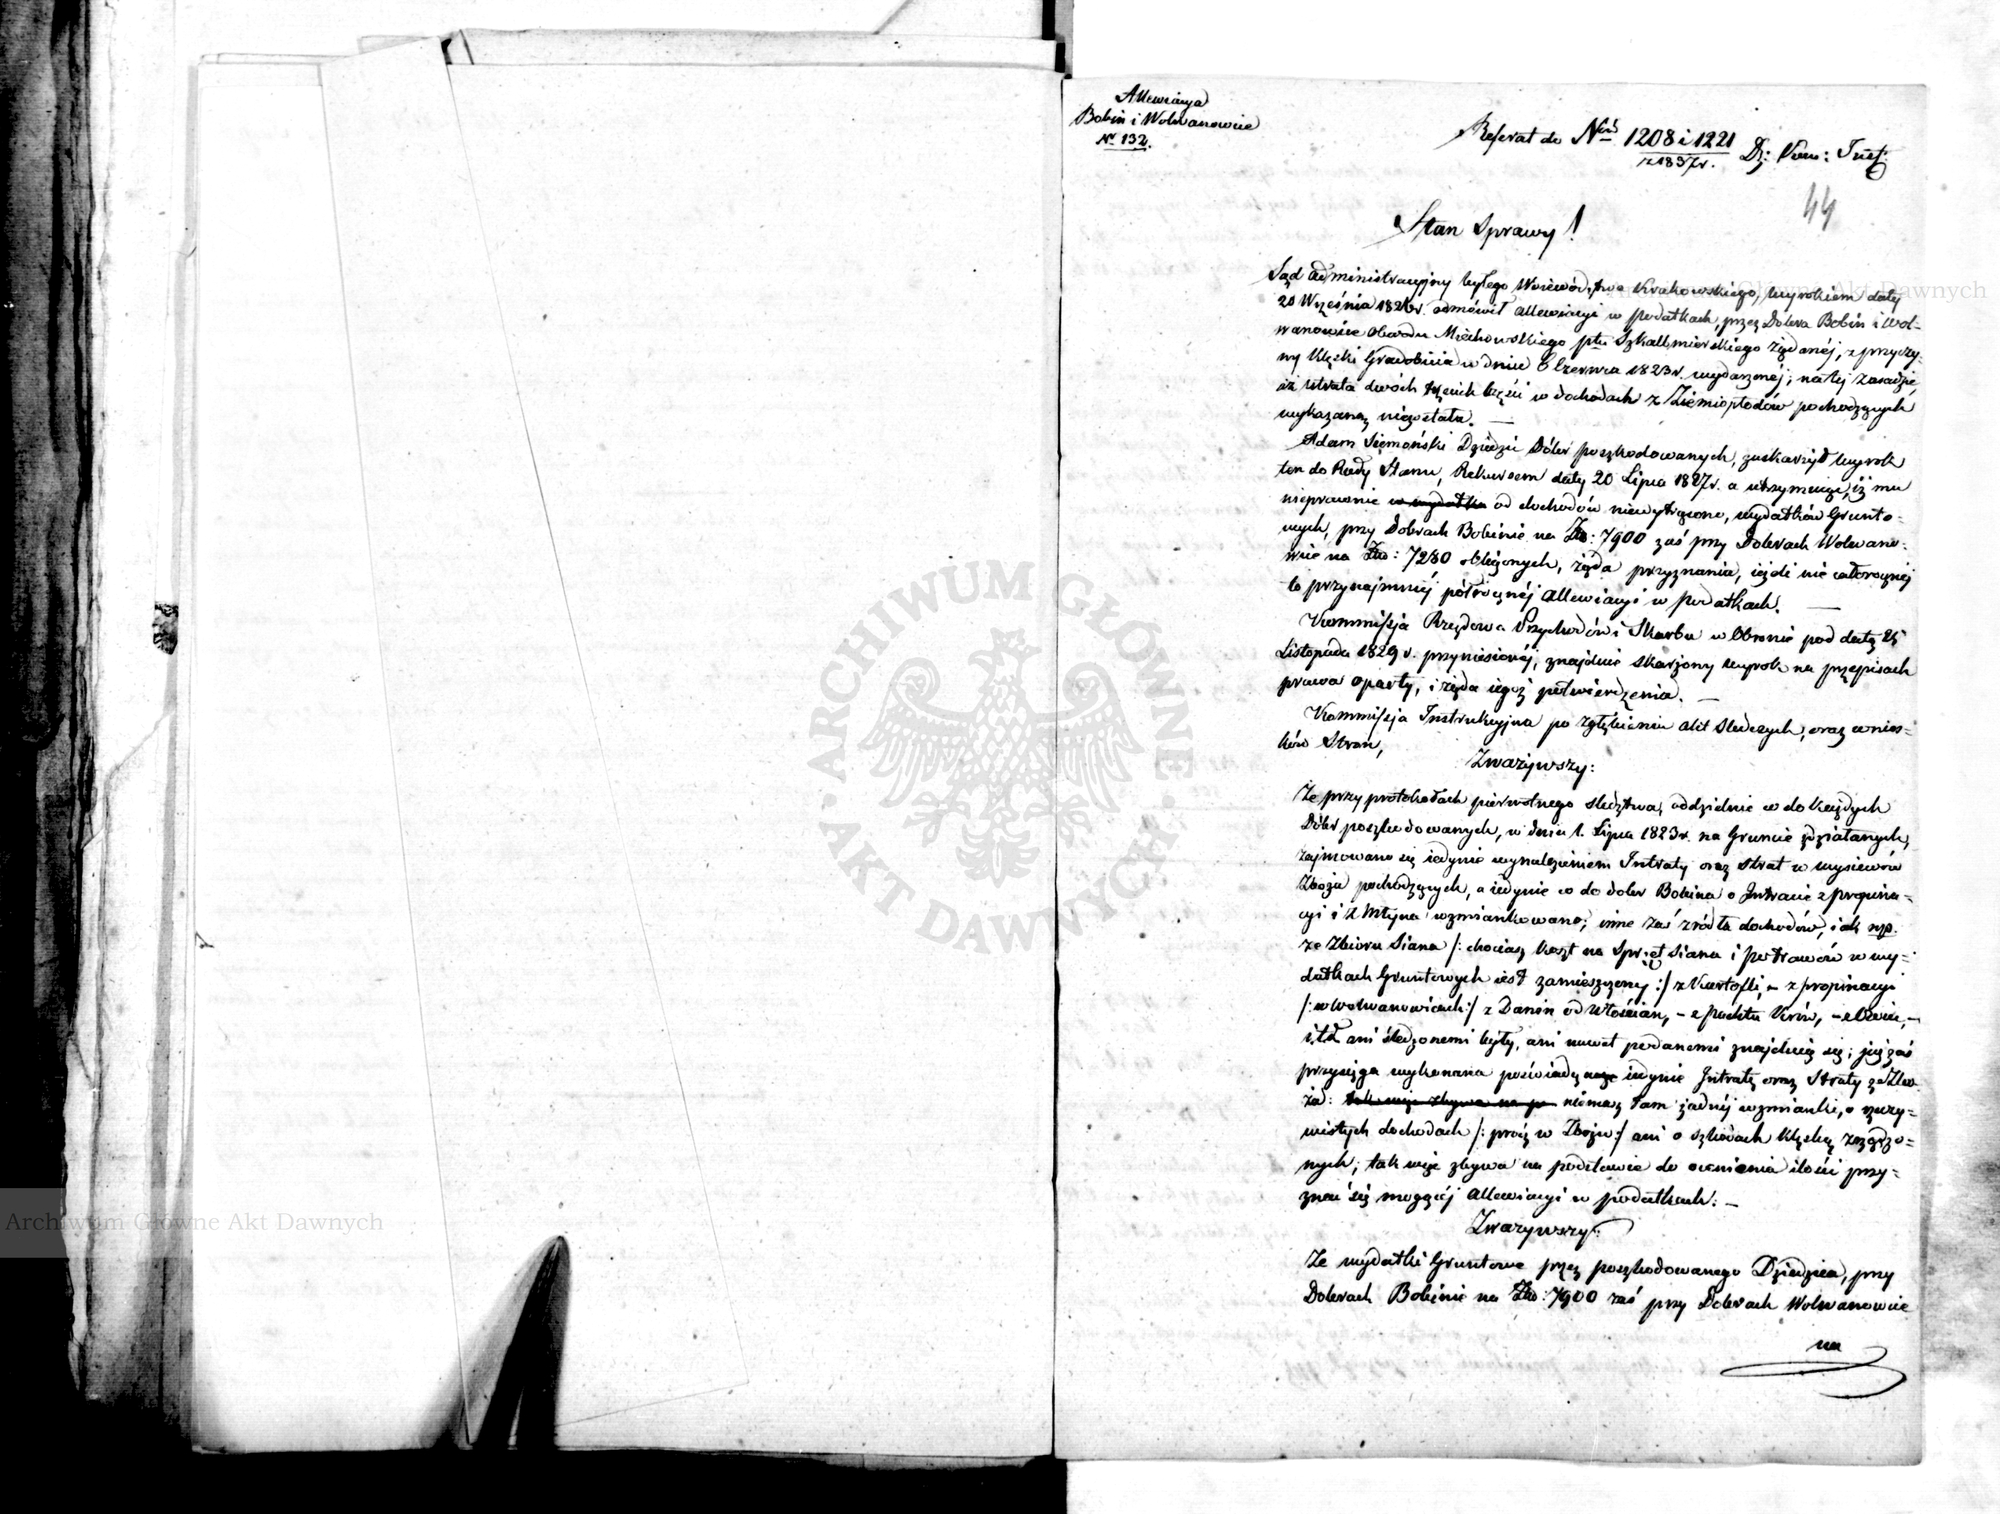 Allewiacya
Bobin i Wolwanowice
Nr. 132.
Referat do Nrów 1208 i 1221
z 1837 r. Dz: Kom: Inst:
44
Stan Sprawy!
Sąd Administracyjny byłego Województwa Krakowskiego, wyrokiem daty
20 Września 1826 r. odmówił allewiacyi w podatkach, przez Dobra Bobin i Wol-
wanowice Obwodu Miechowskiego ptu Szkalbmierskiego żądanéj, z przyczy-
ny klęski Gradobicia w dniu 6 Czerwca 1823 r. wydarzonéj; na téj zasadzie
iż utrata dwóch trzecich części w dochodach z Ziemiopłodów pochodzących
wykazaną niezostała. —
Adam Siemoński Dziedzic Dóbr poszkodowanych, zaskarżył wyrok
ten do Rady Stanu, Rekursem daty 20 Lipca 1827 r. a utrzymuiąc, iż mu
nieprawnie w wydatku od dochodów niewytrącono, wydatków Grunto-
wych, przy Dobrach Bobinie na Złp: 7900 zaś przy Dobrach Wolwano-
wie na Złp: 7280 obliczonych, żąda przyznania, ieżeli nie całorocznéj
to przynajmniéj półrocznéj allewiacyi w podatkach. —
Kommissja Rządowa Przychodów i Skarbu w Obronie pod datą 25
Listopada 1829 r. przyniesionéj, znajduie skarżony wyrok na przepisach
prawa oparty, i żąda iegoż potwierdzenia. —
Kommissja Instrukcyjna po zgłębieniu akt śledczych, oraz wnios-
ków Stron,
Zważywszy:
Że przy protokołach pierwotnego śledztwa, oddzielnie co do każdych
Dóbr poszkodowanych, w dniu 1. Lipca 1823 r. na Gruncie zdziałanych,
zajmowano się iedynie wynalezieniem Intraty oraz strat z wysiewów
Zboża pochodzących, a iedynie co do dobr Bobina o Intracie z propina-
cyi i z Młyna wzmiankowano; inne zaś źródła dochodów, iak np.
ze Zbioru Siana /: chociaż koszt na Sprzęt siana i potrawów w wy-
datkach Gruntowych iest zamieszczony :/ z Kartofli, – z propinacyi
/: w Wolwanowicach :/ z Danin od Włościan, – z pachtu Krów, – z Owiec, –
i t.d. ani śledzonemi były, ani nawet podanemi znajduią się; iuż zaś
przysięga wykonana poświadcza iedynie Intratę oraz Straty ze Zbo-
ża: tak więc zbywa na po niémasz tam żadnéj wzmianki, o rzeczy-
wistych dochodach /: prócz w Zbożu :/ ani o szkodach klęską zrządzo-
nych; tak więc zbywa na podstawie do ocenienia ilości przy-
znać się mogącéj allewiacyi w podatkach. –
Zważywszy:
Że wydatki Gruntowe przez poszkodowanego Dziedzica, przy
Dobrach Bobinie na Złp: 7900 zaś przy Dobrach Wolwanowie
na
ARCHIWUM GŁÓWNE AKT DAWNYCH
Archiwum Główne Akt Dawnych
Archiwum Główne Akt Dawnych